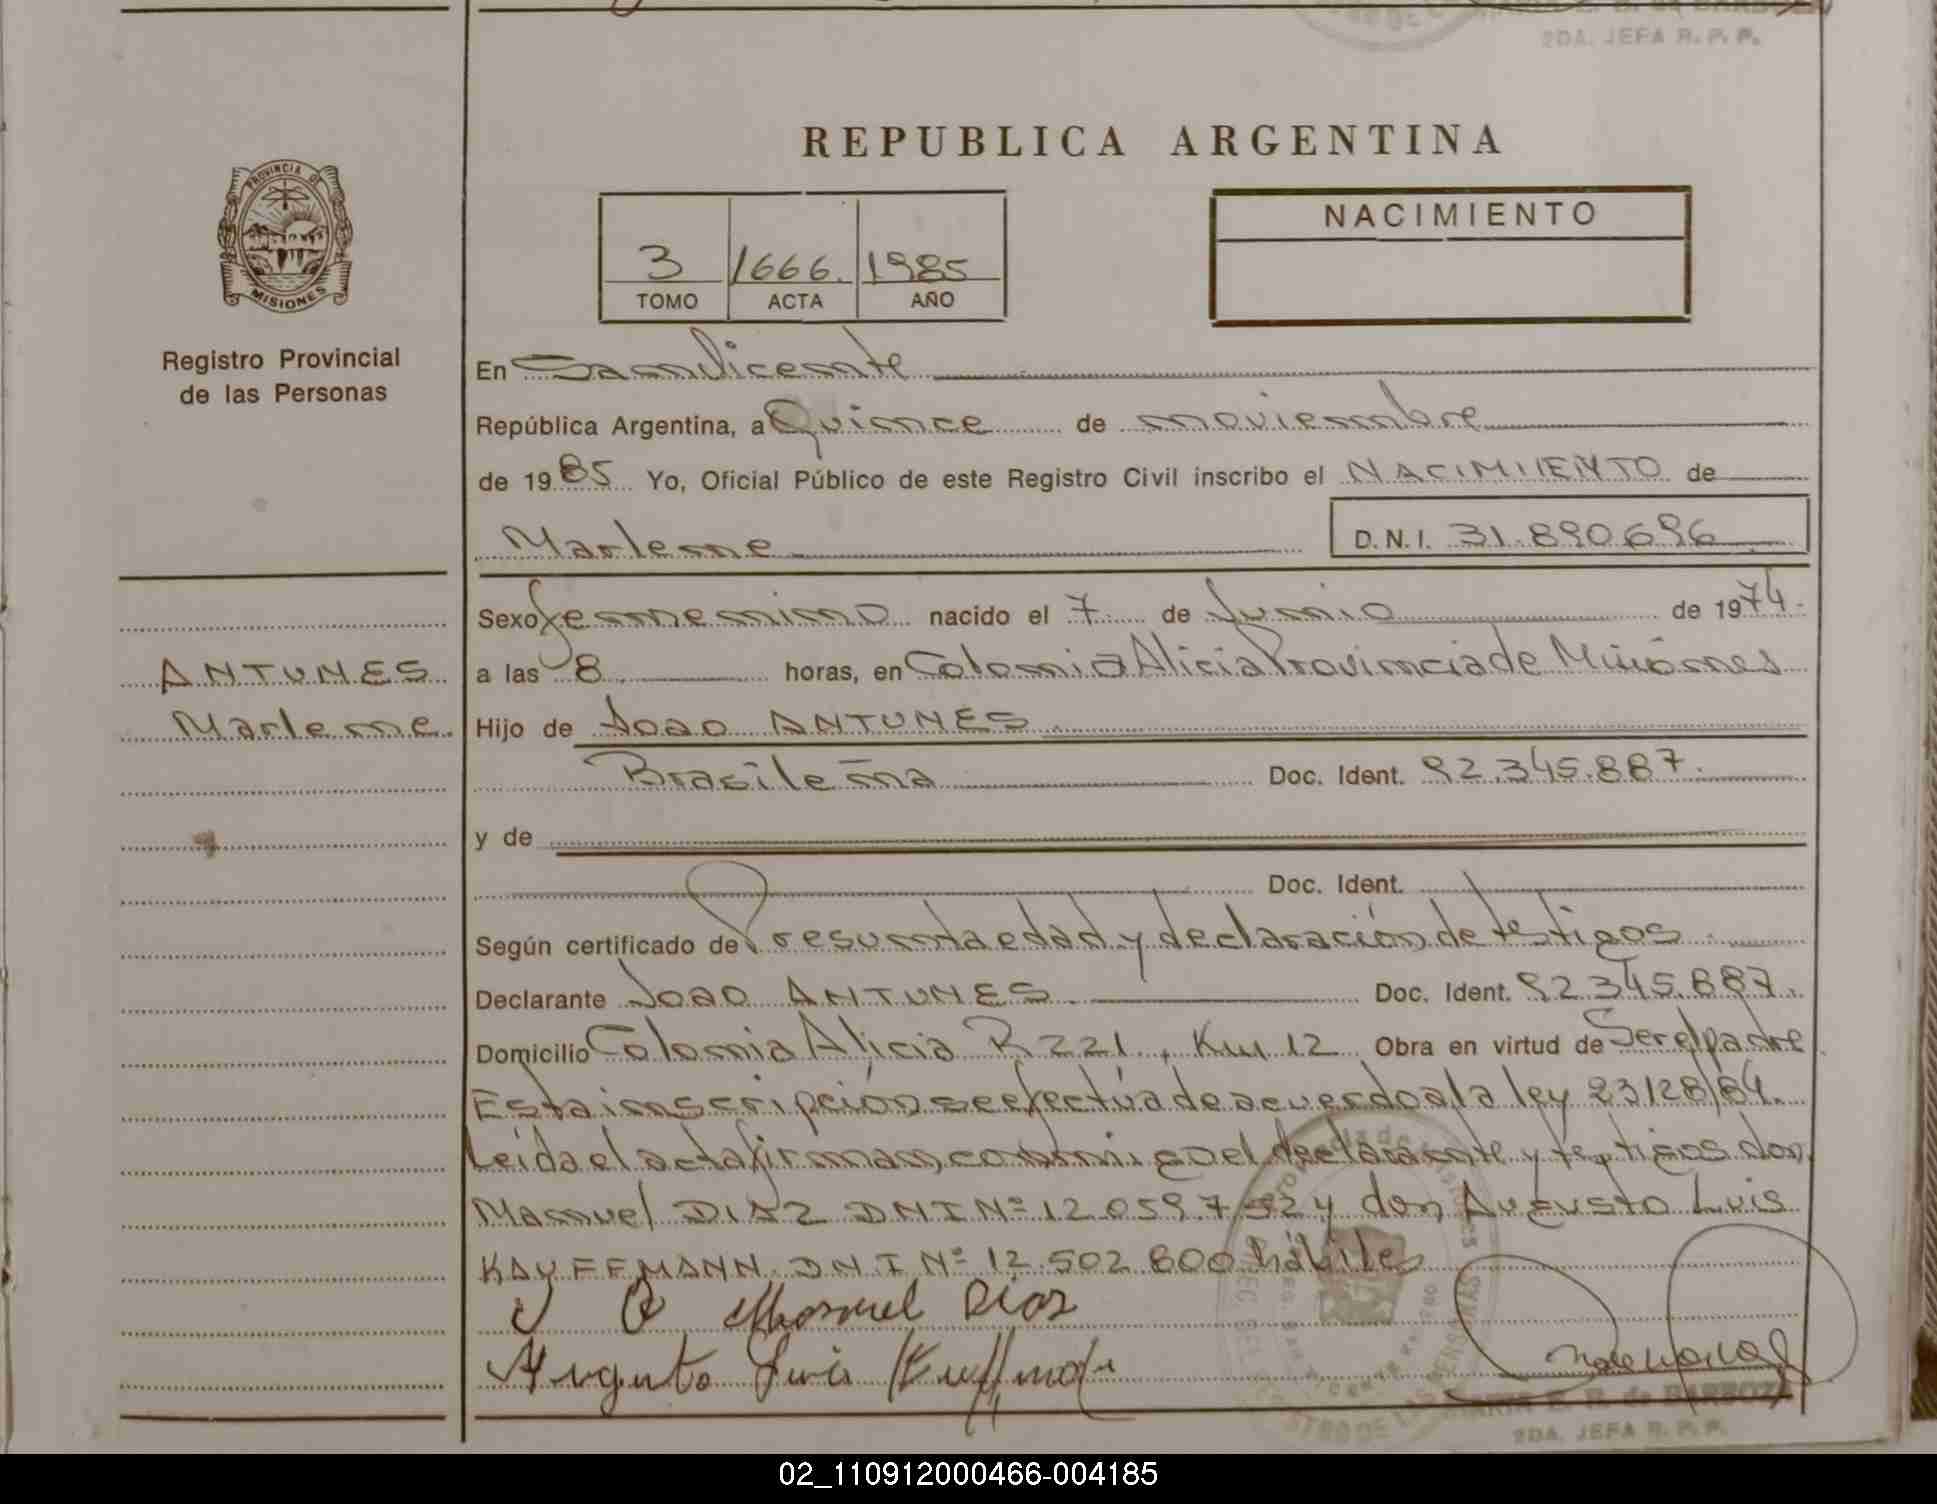 2DA. JEFA R. P. P.
REPUBLICA ARGENTINA
PROVINCIA DE
MISIONES
Registro Provincial
de las Personas
3 1666. 1985
TOMO ACTA AÑO
NACIMIENTO
En San Vicente
República Argentina, a Quince de noviembre
de 1985 Yo, Oficial Público de este Registro Civil inscribo el NACIMIENTO de
Marlene D.N.I. 31.890.696
Sexo femenino nacido el 7 de Junio de 1974.
ANTUNES
Marlene.
a las 8 horas, en Colonia Alicia Provincia de Misiones
Hijo de Joao ANTUNES
Brasileña Doc. Ident. 92.345.887.
y de
Doc. Ident.
Según certificado de Presunta edad y declaración de testigos.
Declarante Joao ANTUNES. Doc. Ident. 92.345.887.
Domicilio Colonia Alicia R 221, Km 12 Obra en virtud de Ser el padre
Esta inscripción se efectúa de acuerdo a la ley 23128/84.
Leída el acta firman conmigo el declarante y testigos don
Manuel DIAZ DNI Nº 12.059.792 y don Augusto Luis
KAUFFMANN DNI Nº 12.502.800 hábiles
J A Manuel Diaz
Augusto Luis
MARIA E. R. de BARBOZA
2DA. JEFA R. P. P.
02_110912000466-004185